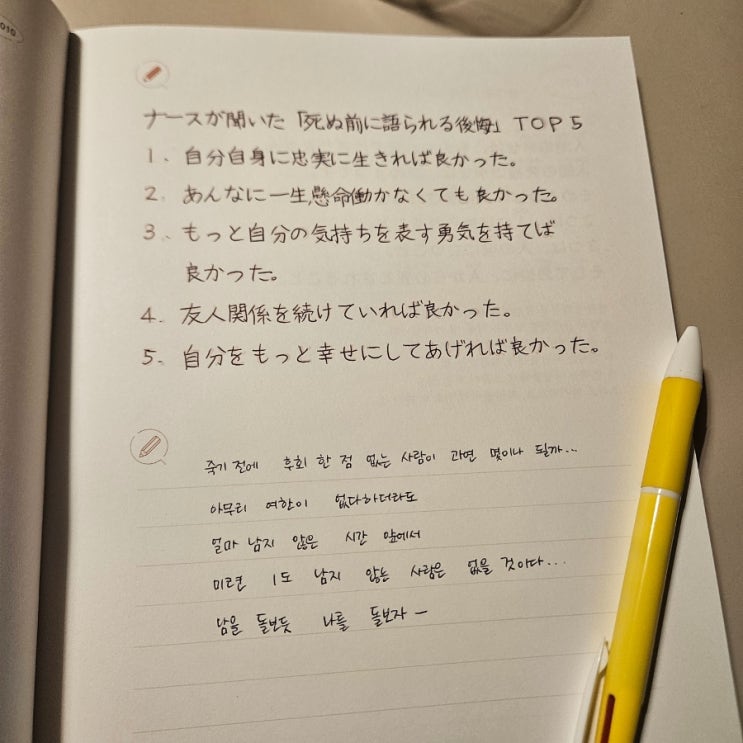 010
ナースが聞いた「死ぬ前に語られる後悔」TOP5
1、自分自身に忠実に生きれば良かった。
2、あんなに一生懸命働かなくても良かった。
3、もっと自分の気持ちを表す勇気を持てば
良かった。
4、友人関係を続けていれば良かった。
5、自分をもっと幸せにしてあげれば良かった。
죽기 전에 후회 한 점 없는 사람이 과연 몇이나 될까...
아무리 여한이 없다하더라도
얼마 남지 않은 시간 앞에서
미련 1도 남지 않는 사람은 없을 것이다...
남을 돌보듯 나를 돌보자 –